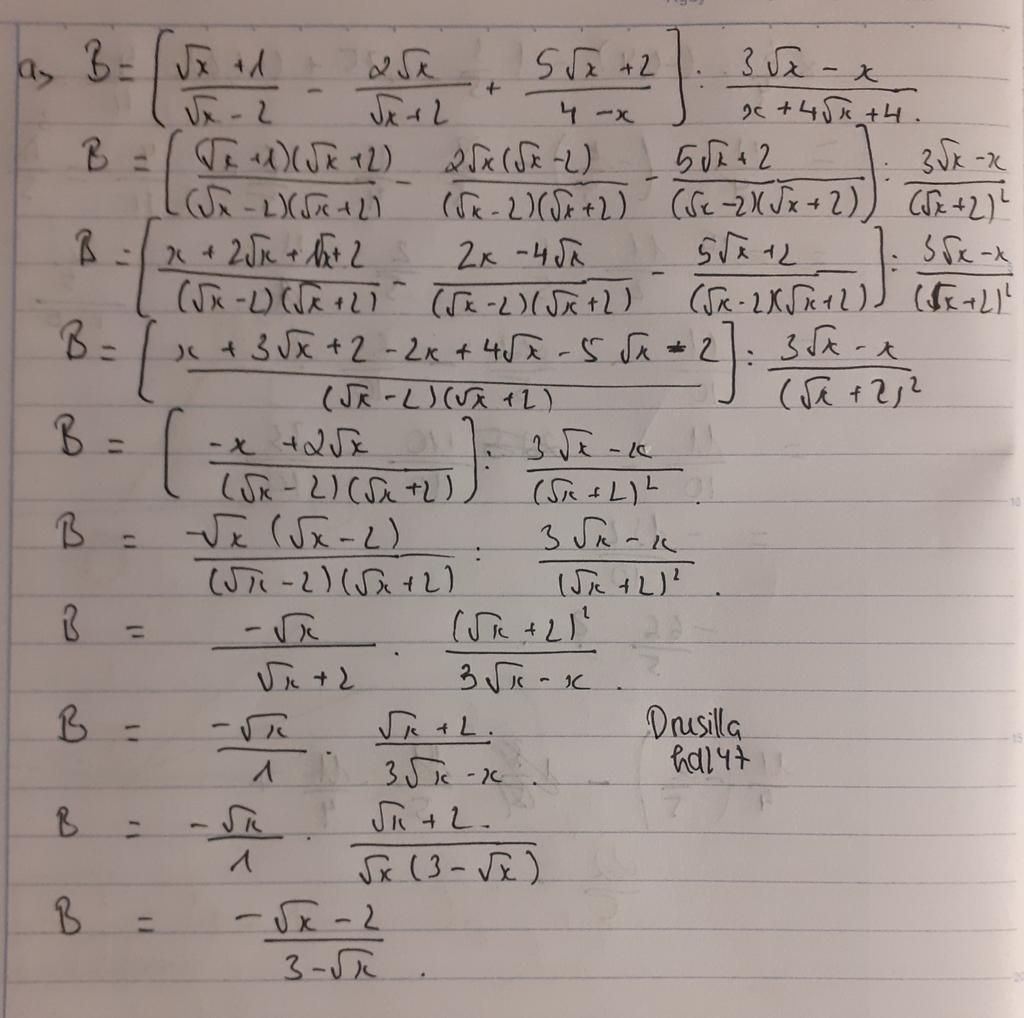 a, B = [ (√x + 1)/(√x - 2) - 2√x/(√x + 2) + (5√x + 2)/(4 - x) ] : (3√x - x)/(x + 4√x + 4).
B = [ (√x + 1)(√x + 2)/(√x - 2)(√x + 2) - 2√x(√x - 2)/(√x - 2)(√x + 2) - (5√x + 2)/(√x - 2)(√x + 2) ] : (3√x - x)/(√x + 2)²
B = [ (x + 2√x + 1√x + 2)/(√x - 2)(√x + 2) - (2x - 4√x)/(√x - 2)(√x + 2) - (5√x + 2)/(√x - 2)(√x + 2) ] : (3√x - x)/(√x + 2)²
B = [ (x + 3√x + 2 - 2x + 4√x - 5√x - 2)/(√x - 2)(√x + 2) ] : (3√x - x)/(√x + 2)²
B = [ (-x + 2√x)/(√x - 2)(√x + 2) ] : (3√x - x)/(√x + 2)².
B = -√x(√x - 2)/(√x - 2)(√x + 2) : (3√x - x)/(√x + 2)².
B = -√x/(√x + 2) . (√x + 2)²/(3√x - x).
B = -√x/1 . (√x + 2)/(3√x - x).
Drusilla
hd247
B = -√x/1 . (√x + 2)/√x(3 - √x)
B = (-√x - 2)/(3 - √x).